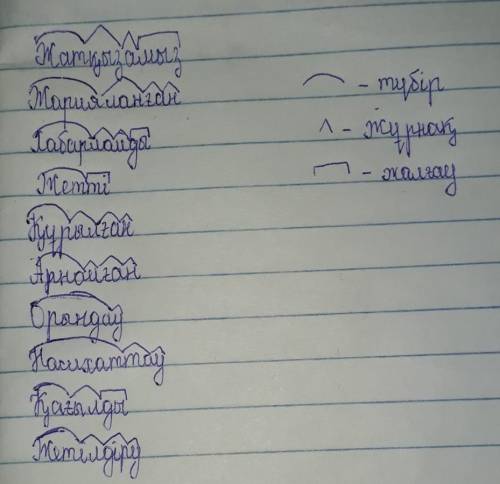 Жатқызамыз
Жарияланған
Хабарлайды
Жетті
Құрылған
Арнайған
Орындау
Насихаттау
Қағылды
Жетілдіру
⌒ - түбір
^ - жұрнақ
⊓ - жалғау